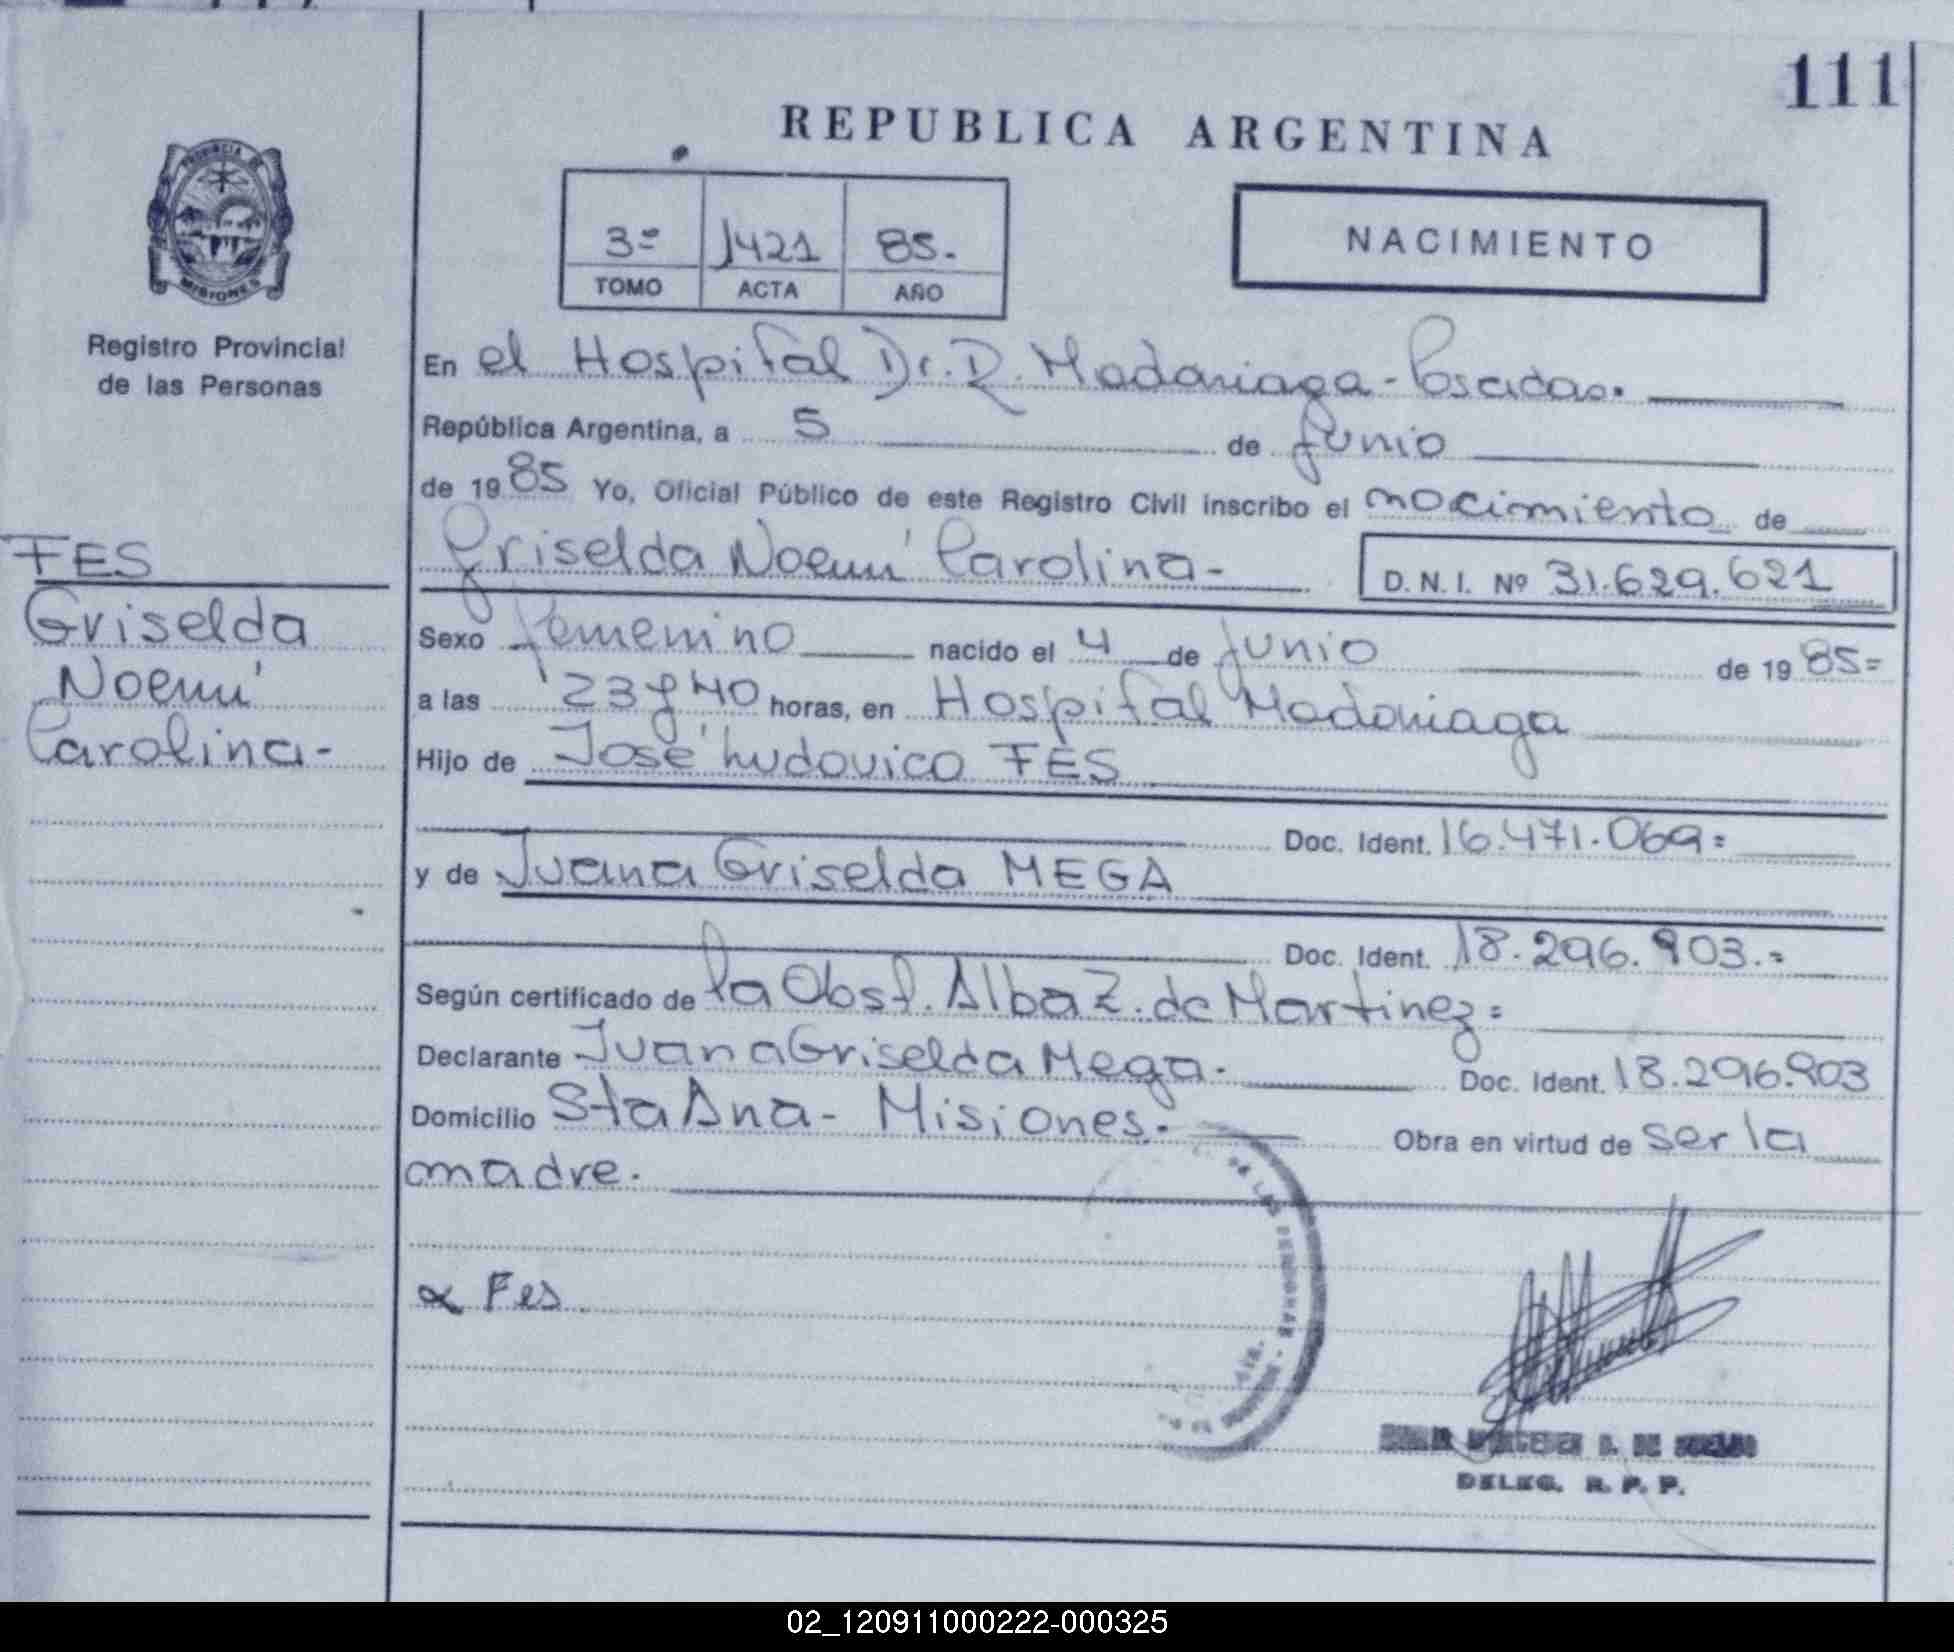 111
REPUBLICA ARGENTINA
PROVINCIA DE
MISIONES
3º 1421 85.-
TOMO ACTA AÑO
NACIMIENTO
Registro Provincial
de las Personas
En el Hospital Dr. R. Madariaga - Posadas.
República Argentina, a 5 de junio
de 1985 Yo, Oficial Público de este Registro Civil inscribo el nacimiento de
Griselda Noemí Carolina- D.N.I. Nº 31.629.621
FES
Griselda
Noemí
Carolina-
Sexo femenino nacido el 4 de junio de 1985=
a las 23 y 40 horas, en Hospital Madariaga
Hijo de José Ludovico FES
Doc. Ident. 16.471.069=
y de Juana Griselda MEGA
Doc. Ident. 18.296.903.=
Según certificado de la Obst. Alba Z. de Martinez=
Declarante Juana Griselda Mega. Doc. Ident. 18.296.903
Domicilio Sta Ana - Misiones. Obra en virtud de ser la
madre.
DE LAS PERSONAS
Fes
D. DE
DELEG. R. P. P.
02_120911000222-000325